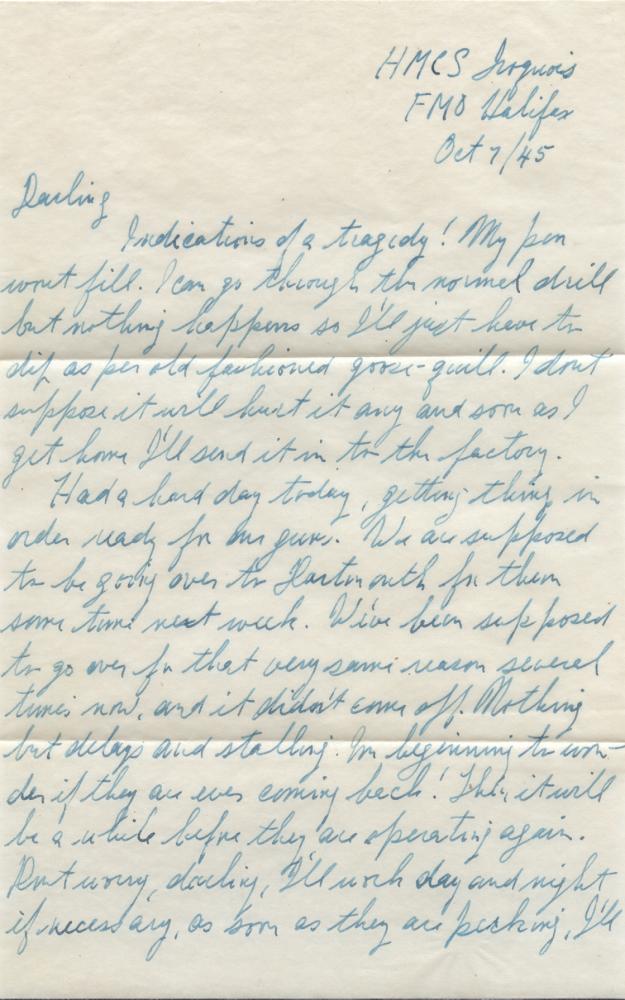 HMCS Iroquois
FMO Halifax
Oct 7/45
Darling
Indications of a tragedy! My pen
wont fill. I can go through the normal drill
but nothing happens so I'll just have to
dip as per old fashioned goose-quill. I dont
suppose it will hurt it any and soon as I
get home I'll send it in to the factory.
Had a hard day today, getting things in
order ready for our guns. We are supposed
to be going over to Dartmouth for them
some time next week. We've been supposed
to go over for that very same reason several
times now, and it didn't come off. Nothing
but delays and stalling. Im beginning to won-
der if they are ever coming back! Then it will
be a while before they are operating again.
Dont worry, darling, I'll work day and night
if necessary, as soon as they are pecking, I'll